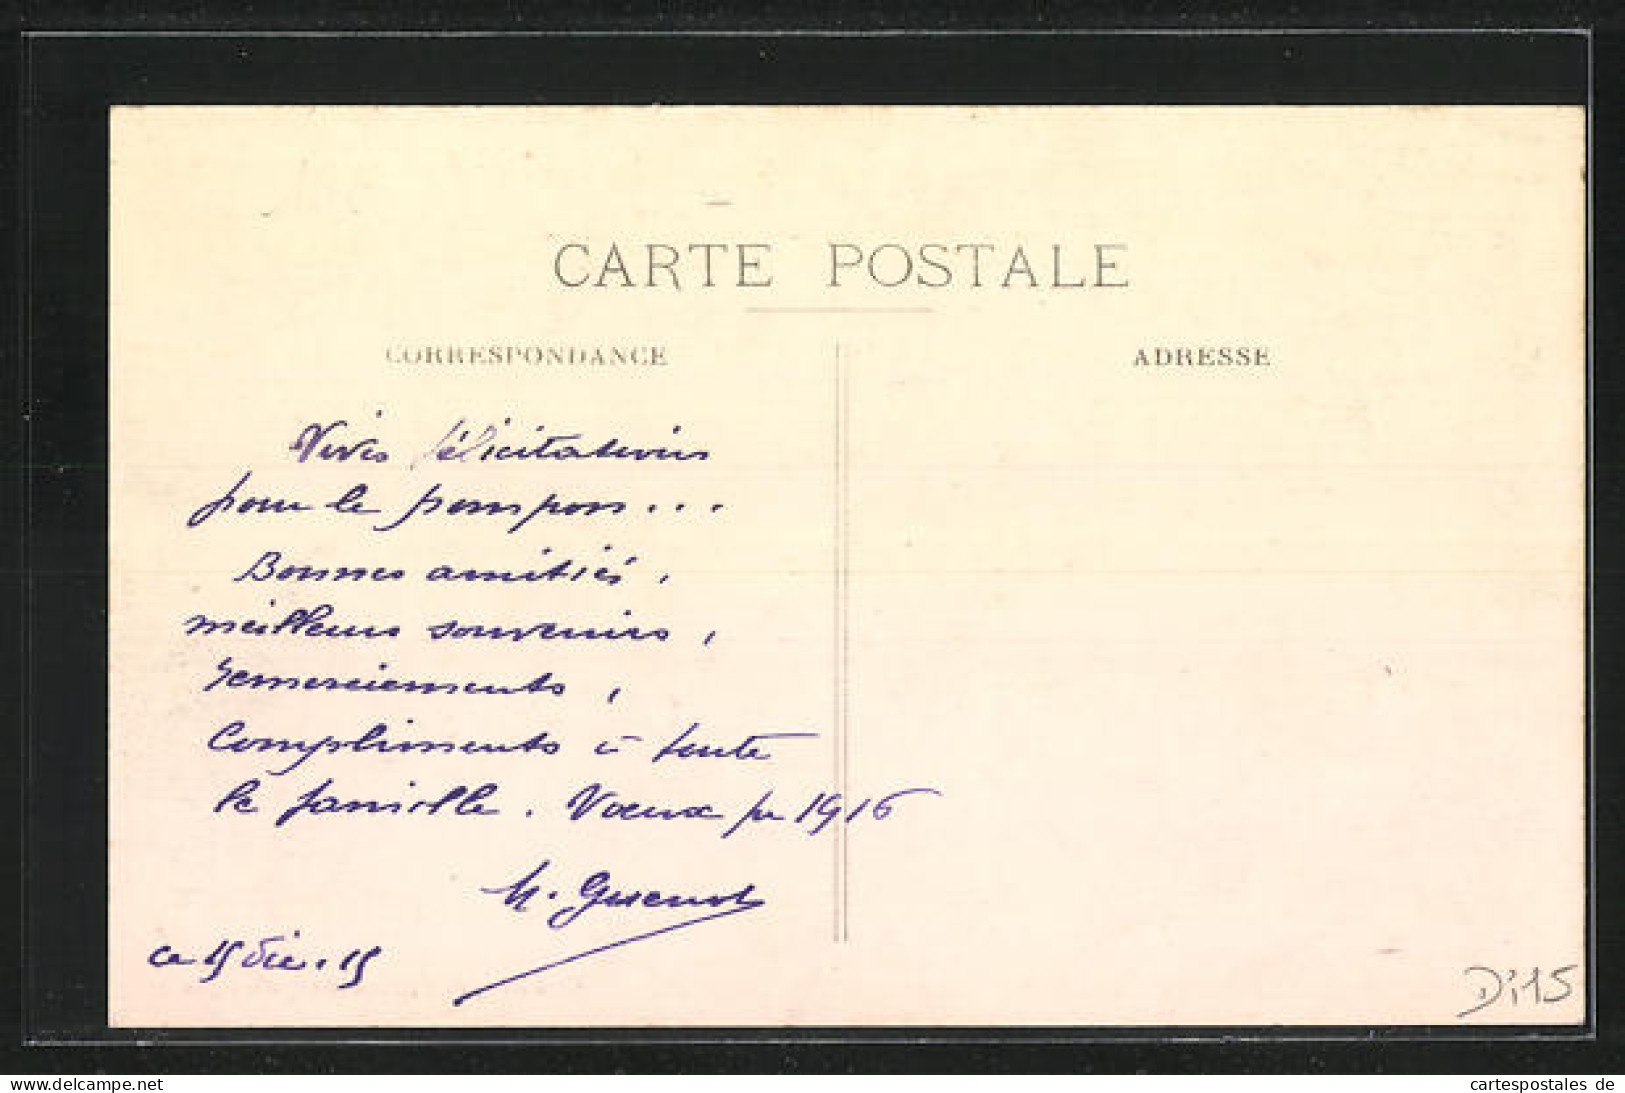 CARTE POSTALE
CORRESPONDANCE
ADRESSE
Vives félicitations
pour le pompon...
Bonnes amitiés,
meilleurs souvenirs,
remerciements,
Compliments à toute
la famille. Voeux pr 1916
H. Guenot
ce 15 Déc. 15
D;15
www.ak-ansichtskarten.de
cartespostales de